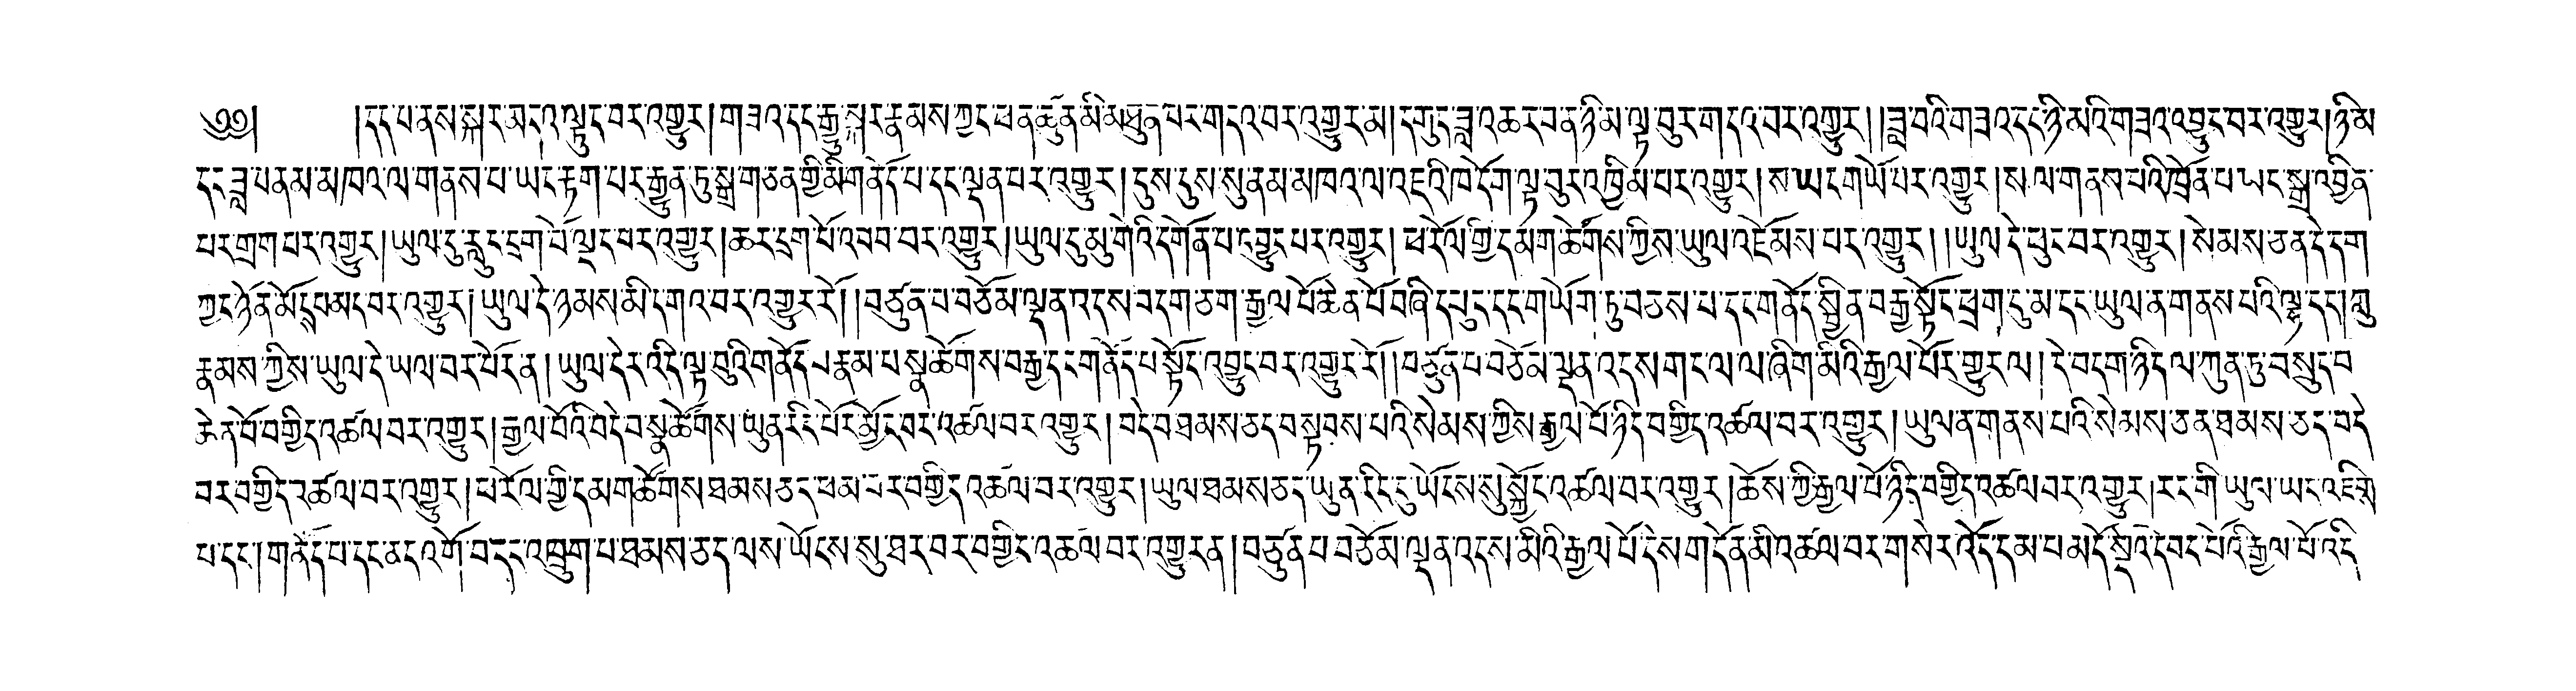 ༄༅། །དང་པ་ནས་སྐར་མདའ་ལྟུང་བར་འགྱུར། གཟའ་དང་རྒྱུ་སྐར་རྣམས་ཀྱང་ཕན་ཚུན་མི་མཐུན་པར་གདའ་བར་འགྱུར་མ། དགུང་ཟླ་འཆར་བན་ཉི་མ་ལྟ་བུར་གདའ་བར་འགྱུར། །ཟླ་བའི་གཟའ་དང་ཉི་མའི་གཟའ་འབྱུང་བར་འགྱུར། ཉི་མ
དང་ཟླ་བ་ནམ་མཁའ་ལ་གནས་པ་ཡང་རྟག་པར་རྒྱུན་ཏུ་སྒྲ་གཅན་གྱི་མི་གནོད་པ་དང་ལྡན་པར་འགྱུར། དུས་དུས་སུ་ནམ་མཁའ་ལ་འཇའི་ཁ་དོག་ལྟ་བུར་འཁྱིམ་བར་འགྱུར། ས་ཡང་གཡོ་བར་འགྱུར། ས་ལ་གནས་པའི་ཁྲོན་པ་ཡང་སྒྲ་འབྱིན་
པར་གྲག་བར་འགྱུར། ཡུལ་དུ་རླུང་དྲག་པོ་ལྡང་བར་འགྱུར། ཆར་དྲག་པོ་འབབ་བར་འགྱུར། ཡུལ་དུ་མུ་གེའི་དགོན་པ་འབྱུང་བར་འགྱུར། ཕ་རོལ་གྱི་དམག་ཚོགས་ཀྱིས་ཡུལ་འཇོམས་པར་འགྱུར། །ཡུལ་དེ་ཕུང་བར་འགྱུར། སེམས་ཅན་དེ་དག
ཀྱང་ཉོན་མོངས་མང་བར་འགྱུར། ཡུལ་དེ་ཉམས་མི་དགའ་བར་འགྱུར་རོ། །བཙུན་པ་བཅོམ་ལྡན་འདས་བདག་ཅག་རྒྱལ་པོ་ཆེན་པོ་བཞི་དཔུང་དང་གཡོག་ཏུ་བཅས་པ་དང་གནོད་སྦྱིན་བརྒྱ་སྟོང་ཕྲག་དུ་མ་དང་ཡུལ་ན་གནས་པའི་ལྷ་དང༌། ཀླུ
རྣམས་ཀྱིས་ཡུལ་དེ་ཡལ་བར་བོར་ན། ཡུལ་དེར་འདི་ལྟ་བུའི་གནོད་པ་རྣམ་པ་སྣ་ཚོགས་བརྒྱ་དང་གནོད་པ་སྟོང་འབྱུང་བར་འགྱུར་རོ། །བཙུན་པ་བཅོམ་ལྡན་འདས་གང་ལ་ལ་ཞིག་མིའི་རྒྱལ་པོར་གྱུར་ལ། དེ་བདག་ཉིད་ལ་ཀུན་ཏུ་བསྲུང་བ
ཆེན་པོ་བགྱིད་འཚལ་བར་འགྱུར། རྒྱལ་པོའི་བདེ་བ་སྣ་ཚོགས་ཡུན་རིང་པོར་མྱོང་བར་འཚལ་བར་འགྱུར། བདེ་བ་ཐམས་ཅད་བསྟབས་པའི་སེམས་ཀྱིས་རྒྱལ་པོ་ཉིད་བགྱིད་འཚལ་བར་འགྱུར། ཡུལ་ན་གནས་པའི་སེམས་ཅན་ཐམས་ཅད་བདེ
བར་བགྱིད་འཚལ་བར་འགྱུར། ཕ་རོལ་གྱི་དམག་ཚོགས་ཐམས་ཅད་ཕམ་པར་བགྱིད་འཚལ་བར་འགྱུར། ཡུལ་ཐམས་ཅད་ཡུན་རིང་དུ་ཡོངས་སུ་སྐྱོང་འཚལ་བར་འགྱུར། ཆོས་ཀྱི་རྒྱལ་པོ་ཉིད་བགྱིད་འཚལ་བར་འགྱུར། རང་གི་ཡུལ་ཡང་འཇིགས
པ་དང༌། གནོད་པ་དང་ནད་འགོ་བ་དང་འཁྲུག་པ་ཐམས་ཅད་ལས་ཡོངས་སུ་ཐར་བར་བགྱིད་འཚལ་བར་འགྱུར་ན། བཙུན་པ་བཅོམ་ལྡན་འདས་མིའི་རྒྱལ་པོ་དེས་གདོན་མི་འཚལ་བར་གསེར་འོད་དམ་པ་མདོ་སྡེའི་དབང་པོའི་རྒྱལ་པོ་འདི